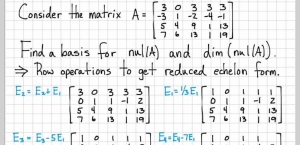 Consider the matrix A = [3 0 3 3 3
-3 1 -2 -4 -1
5 4 9 1 13
7 6 13 1 19]
Find a basis for nul(A) and dim(nul(A)).
⇒ Row operations to get reduced echelon form.
E₂ = E₂+E₁ [3 0 3 3 3
0 1 1 -1 2
5 4 9 1 13
7 6 13 1 19] E₁ = 1/3E₁ [1 0 1 1 1
0 1 1 -1 2
5 4 9 1 13
7 6 13 1 19]
E₃ = E₃-5E₁ [1 0 1 1 1 E₄=E₄-7E₁ [1 0 1 1 1